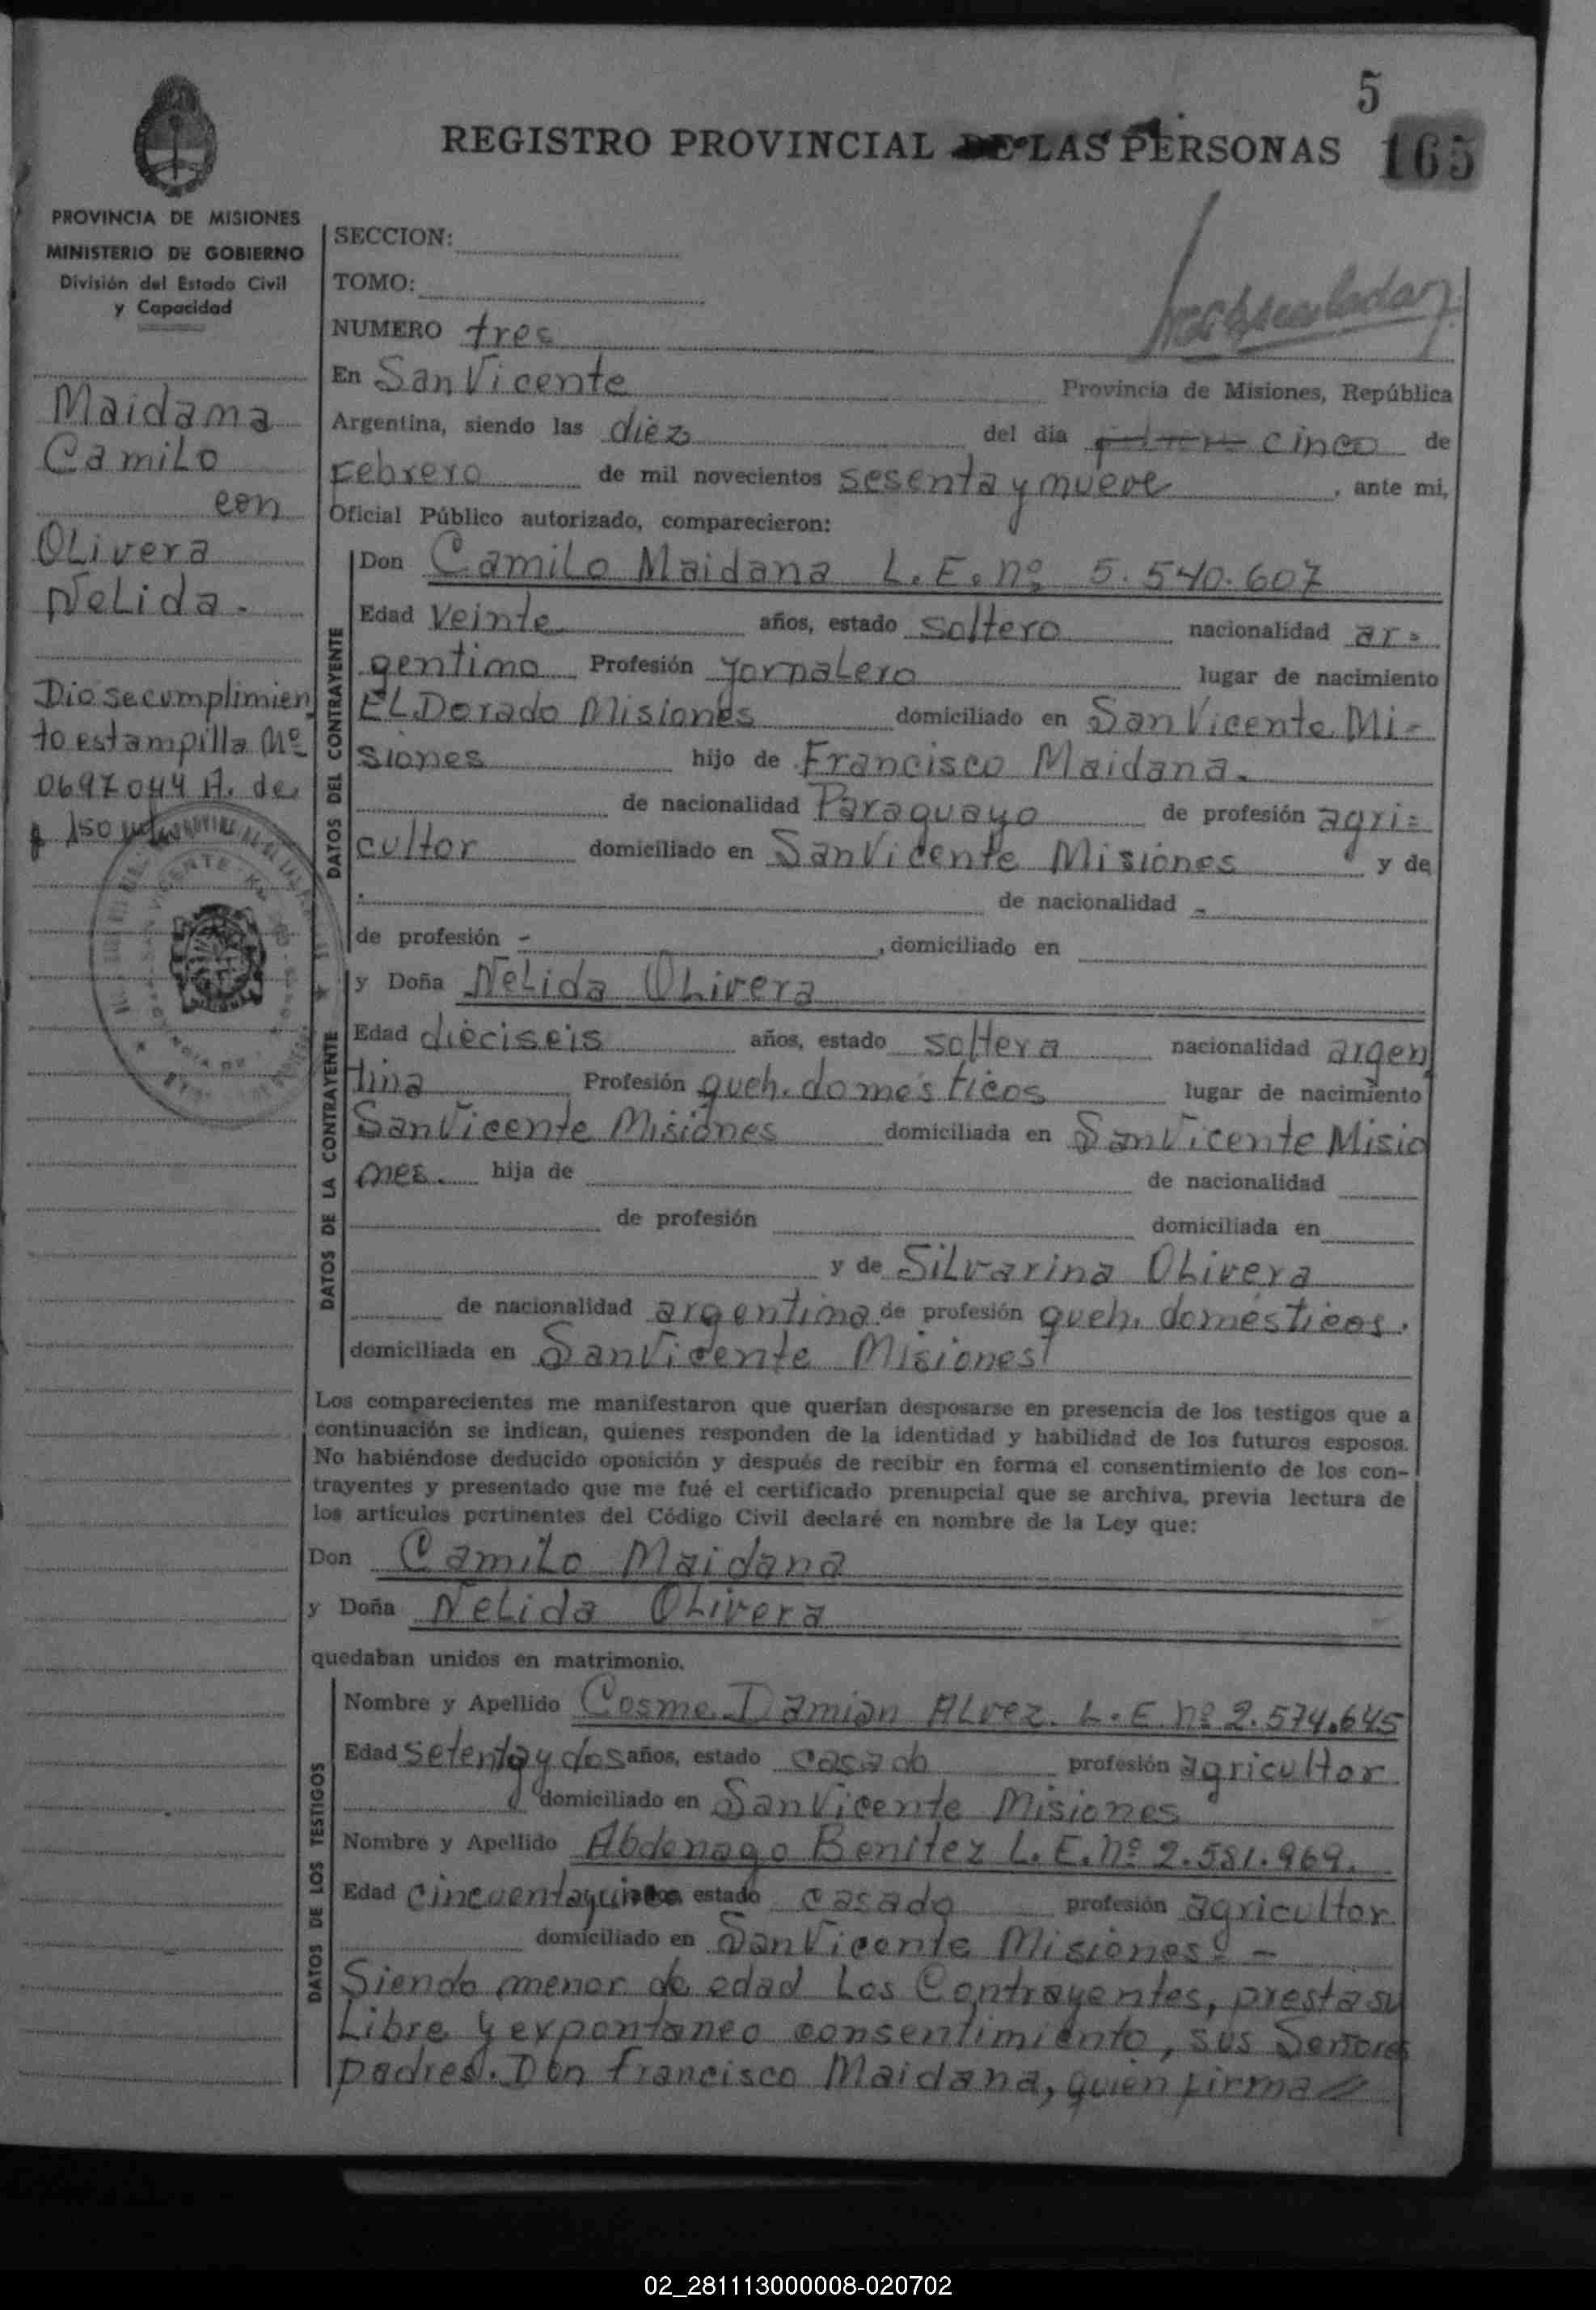 5
REGISTRO PROVINCIAL DE LAS PERSONAS 165
PROVINCIA DE MISIONES
MINISTERIO DE GOBIERNO
División del Estado Civil
y Capacidad
Maidama
Camilo
con
Olivera
Nelida.
Diose cumplimien
to estampilla Nº
0697044 A. de
150
SECCION:
TOMO:
NUMERO tres
En San Vicente Provincia de Misiones, República
Argentina, siendo las diez del día cinco de
Febrero de mil novecientos sesenta y nueve, ante mi,
Oficial Público autorizado, comparecieron:
DATOS DEL CONTRAYENTE
Don Camilo Maidana L.E.nº 5.540.607
Edad veinte años, estado soltero nacionalidad ar-
gentino Profesión Jornalero lugar de nacimiento
El Dorado Misiones domiciliado en San Vicente Mi-
siones hijo de Francisco Maidana.
de nacionalidad Paraguayo de profesión agri-
cultor domiciliado en San Vicente Misiones y de
de nacionalidad -
de profesión - , domiciliado en
DATOS DE LA CONTRAYENTE
y Doña Nelida Olivera
Edad dieciseis años, estado soltera nacionalidad argen
tina Profesión queh. domésticos lugar de nacimiento
San Vicente Misiones domiciliada en San Vicente Misio
nes. hija de de nacionalidad
de profesión domiciliada en
y de Silvarina Olivera
de nacionalidad argentina de profesión queh. domésticos.
domiciliada en San Vicente Misiones
Los comparecientes me manifestaron que querían desposarse en presencia de los testigos que a
continuación se indican, quienes responden de la identidad y habilidad de los futuros esposos.
No habiéndose deducido oposición y después de recibir en forma el consentimiento de los con-
trayentes y presentado que me fué el certificado prenupcial que se archiva, previa lectura de
los artículos pertinentes del Código Civil declaré en nombre de la Ley que:
Don Camilo Maidana
y Doña Nelida Olivera
quedaban unidos en matrimonio.
DATOS DE LOS TESTIGOS
Nombre y Apellido Cosme Damian Alvez. L.E.nº 2.574.645
Edad setenta y dos años, estado casado profesión agricultor
domiciliado en San Vicente Misiones
Nombre y Apellido Abdenago Benitez L.E.nº 2.581.969.
Edad cincuenta y cinco estado casado profesión agricultor
domiciliado en San Vicente Misiones. -
Siendo menor de edad los Contrayentes, presta su
Libre y expontaneo consentimiento, sus Señores
padres. Don Francisco Maidana, quien firma
02_281113000008-020702